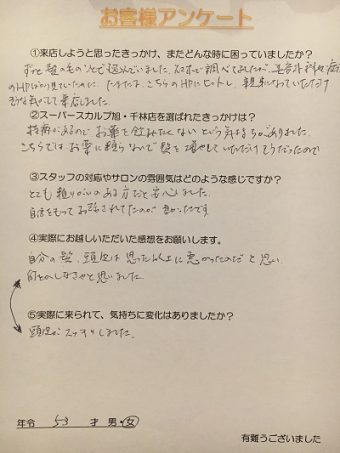 お客様アンケート
①来店しようと思ったきっかけ、またどんな時に困っていましたか？
ずっと髪のものことで悩んでいました。スマホで調べてみましたが、美容外科や病院
のHPばかり見ていたのに、たまたま、こちらのHPにヒットし、親身になっていただけ
そうな気がして来店しました。
②スーパースカルプ旭・千林店を選ばれたきっかけは？
持病があるのでお薬を飲みたくないという気持ちがありました。
こちらではお薬に頼らないで髪を増やしていただけそうだったので
③スタッフの対応やサロンの雰囲気はどのような感じですか？
とても頼りがいのある方だと安心しました。
自信をもってお話されてたのが良かったです
④実際にお越しいただいた感想をお願いします。
自分の髪、頭皮は思った以上に悪かったのだと思い
何とかしなきゃと思いました。
⑤実際に来られて、気持ちに変化はありましたか？
頭皮がスッキリしました。
年令 53 才 男・女
有難うございました